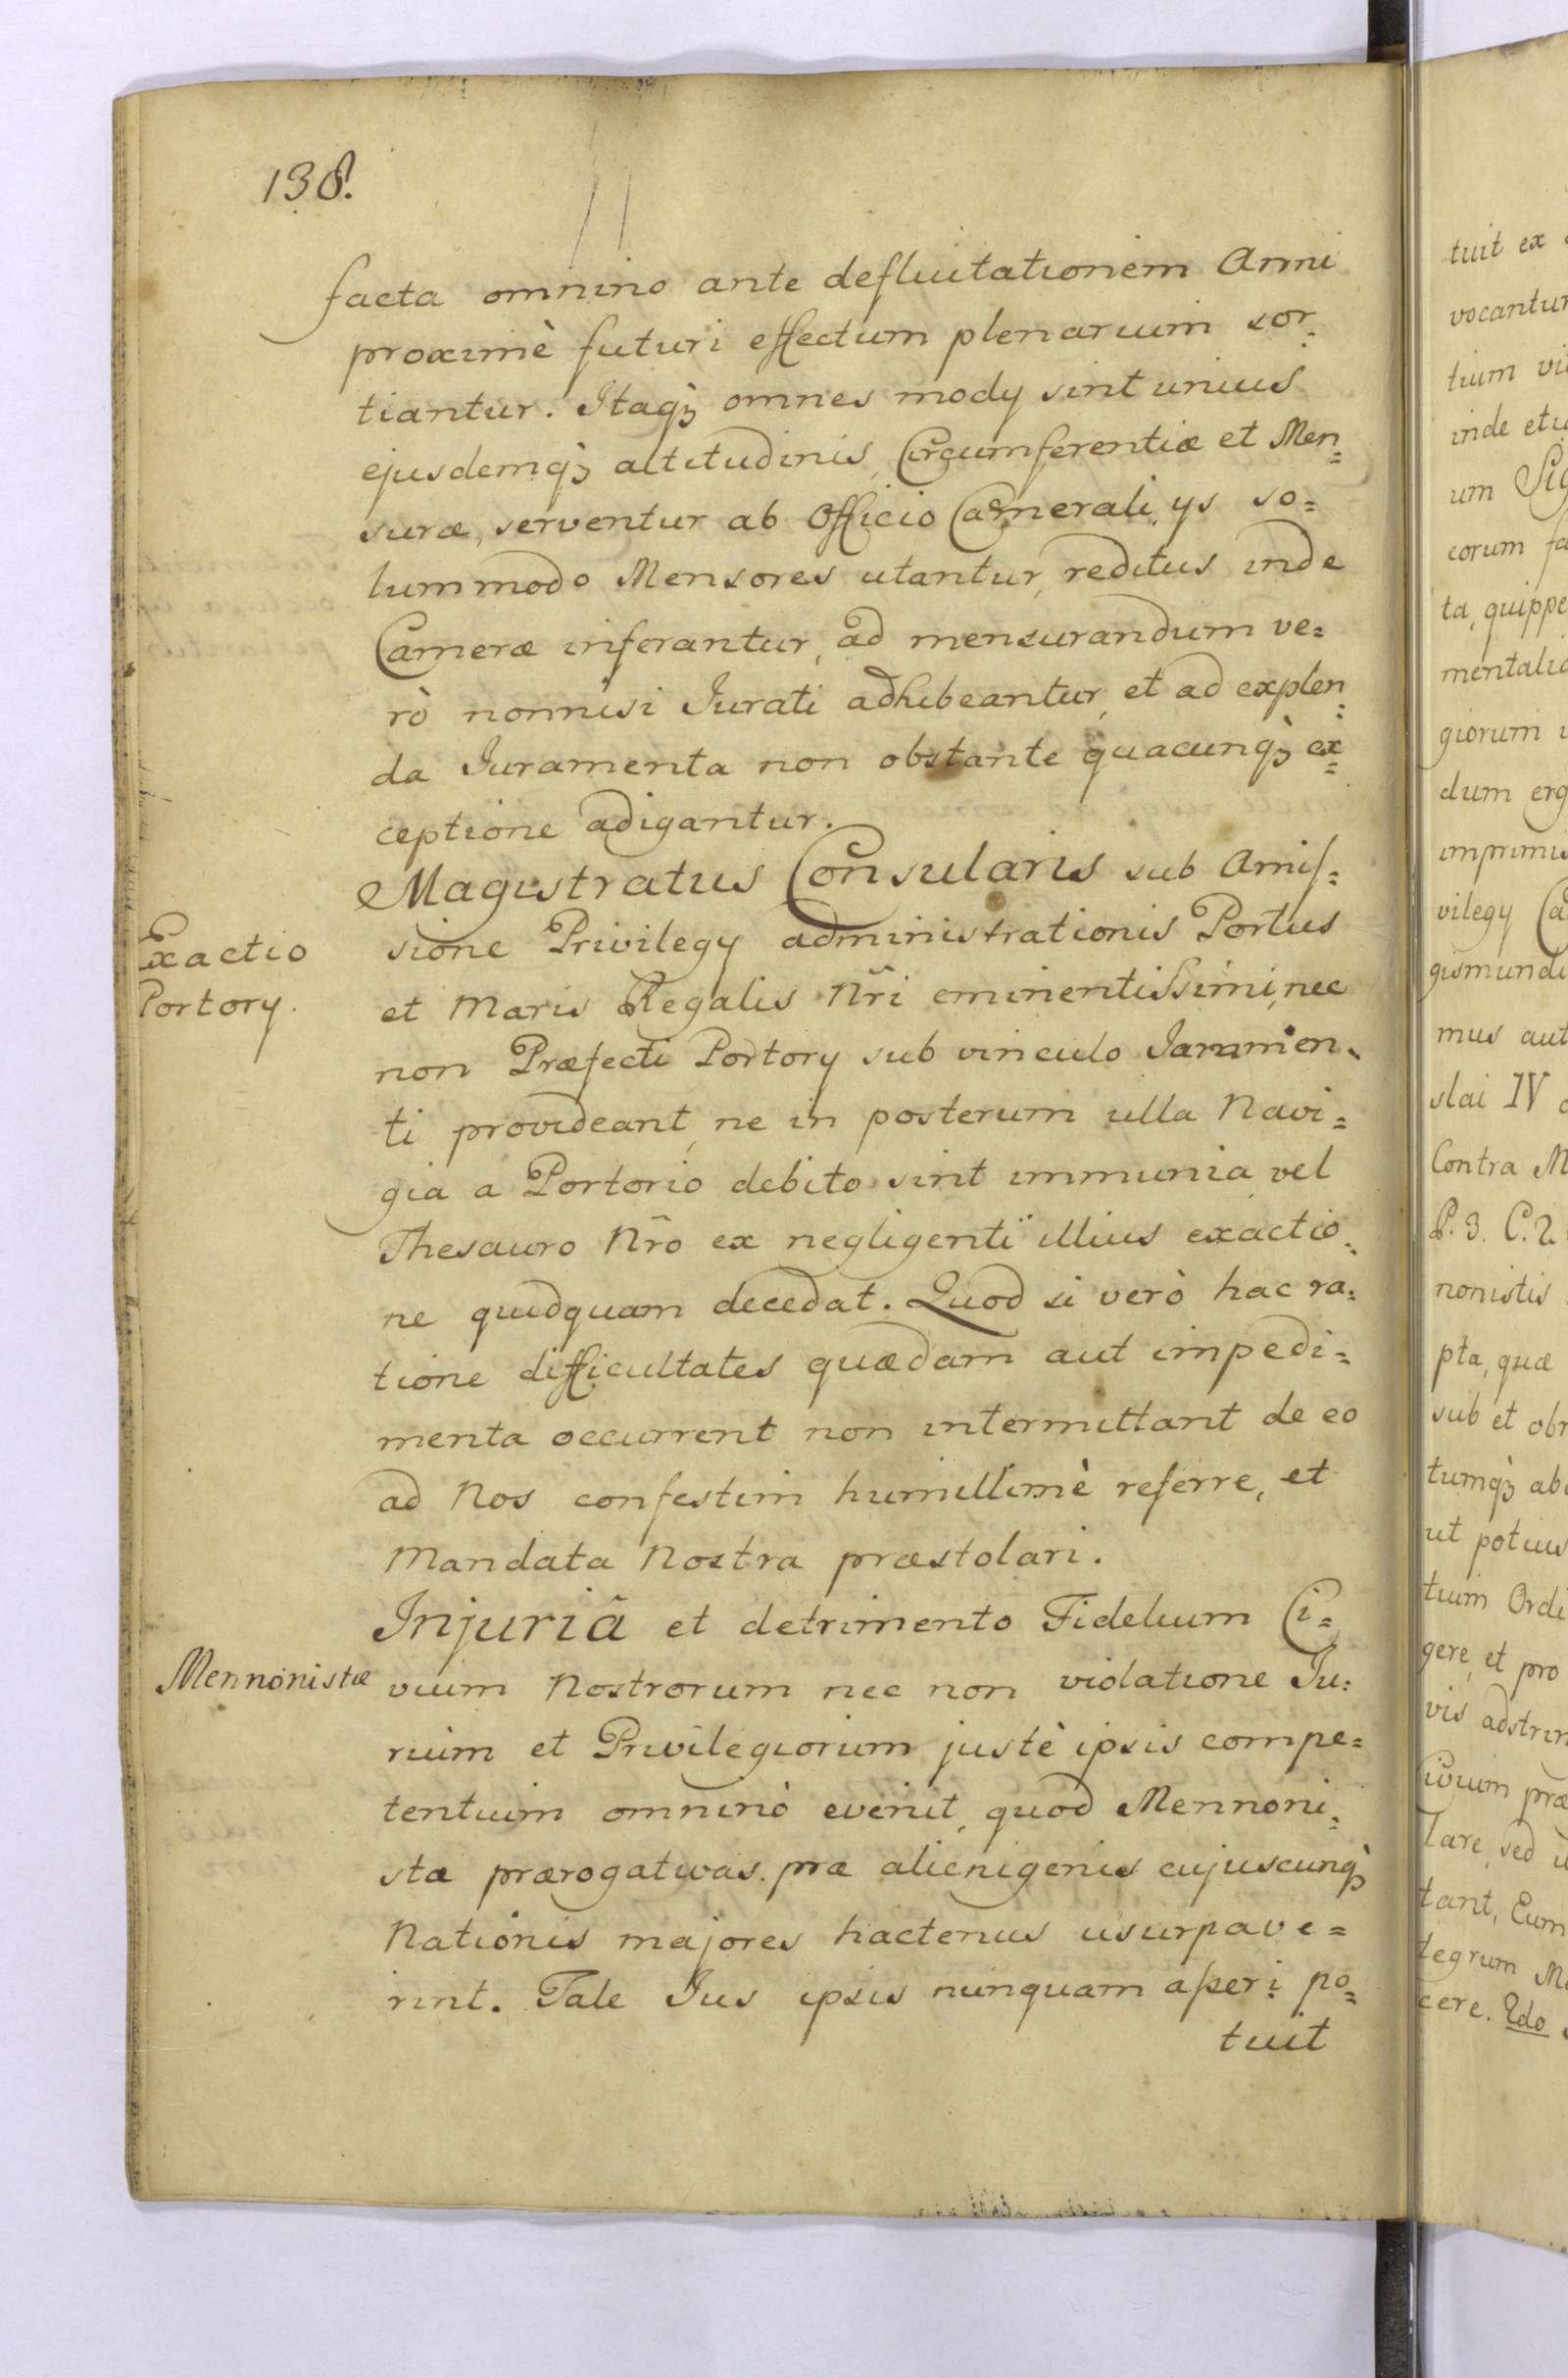 138.
facta omnino ante defluitationem Anni
proximè futuri effectum plenarium sor=
tiantur. Itaqꝫ omnes mody sint unius
ejusdemqꝫ altitudinis, Circumferentiæ et Men=
suræ, serventur ab Officio Camerali, ys so=
lummodo Mensores utantur, reditus inde
Cameræ inferantur, ad mensurandum ve=
rò nonnisi Jurati adhibeantur, et ad explen=
da Juramenta non obstante quacunqꝫ ex=
ceptione adigantur.
Magistratus Consularis sub Amis=
Exactio
Portory.
sione Privilegy administrationis Portus
et Maris Regalis Nr̃i eminentissimi, nec
non Præfecti Portory sub vinculo Juramen=
ti provideant, ne in posterum ulla Navi=
gia a Portorio debito sint immunia, vel
Thesauro Nr̃o ex negligenti illius exactio=
ne quidquam decedat. Quod si verò hac ra=
tione difficultates quædam aut impedi=
menta occurrent non intermittant de eo
ad Nos confestim humillimè referre, et
Mandata Nostra præstolari.
Injuriâ et detrimento Fidelium Ci=
Mennonistæ
vium Nostrorum nec non violatione Ju=
rium et Privilegiorum justè ipsis compe=
tentium omninò evenit, quod Mennoni=
stæ prærogativas præ alienigenis cujuscunqꝫ
Nationis majores hactenus usurpave=
rint. Tale Jus ipsis nunquam asseri po=
tuit
tuit ex
vocantur
tium
inde
um
corum
ta, quippe
giorum
dum
vilegy
gismundi
mus
slai IV
Contra
P. 3. C. 2.
nonistis
pta, quæ
sub et
tumqꝫ
ut potius
tium
gere, et pro
vis
Civium
lare, sed
tant,
tegrum
cere. 2do